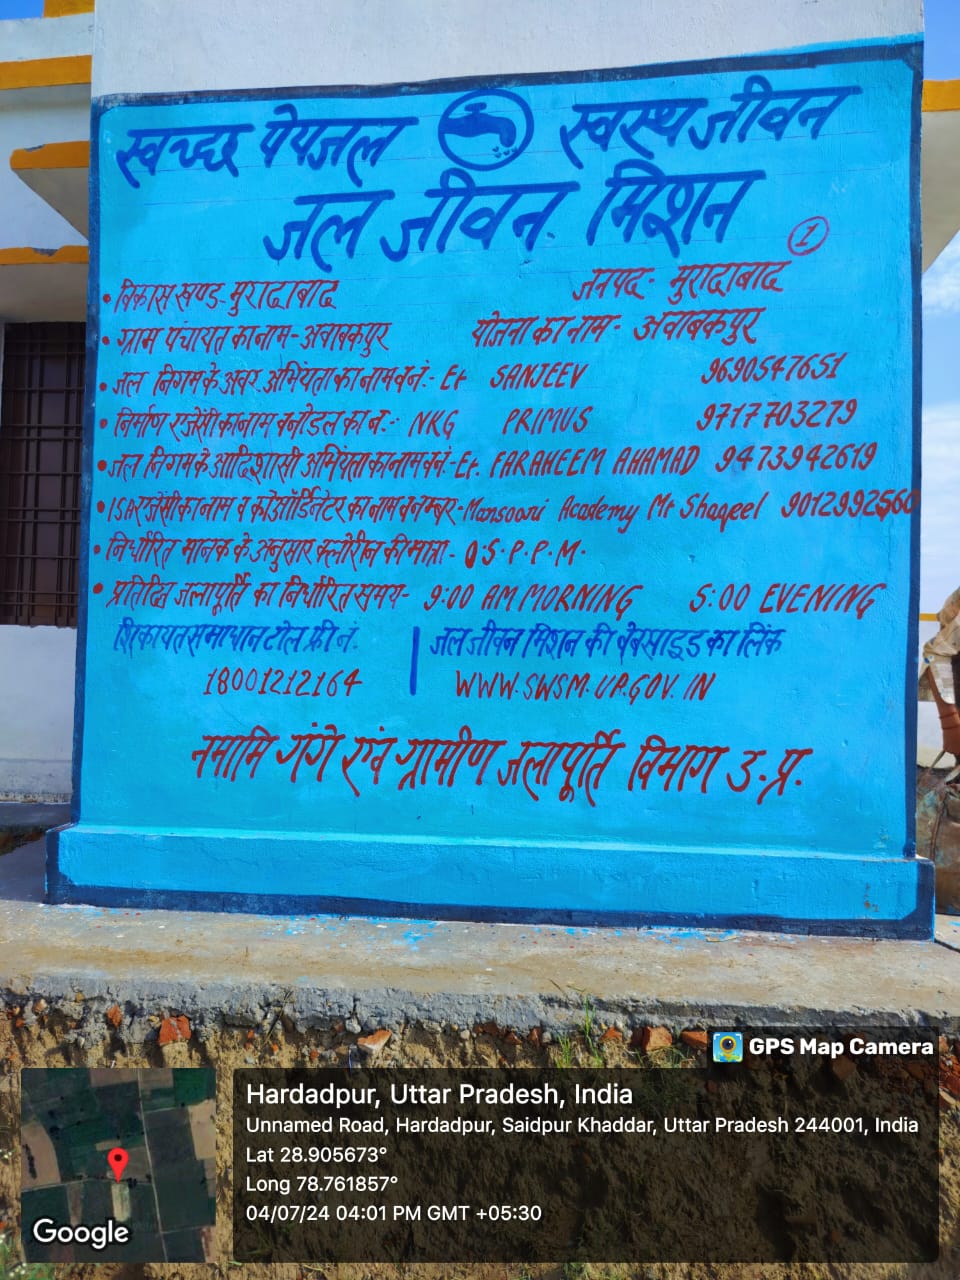 स्वच्छ पेयजल स्वस्थ जीवन
जल जीवन मिशन
1
• विकास खण्ड- मुरादाबाद जनपद- मुरादाबाद
• ग्राम पंचायत का नाम- अवाबकपुर योजना का नाम- अवाबकपुर
• जल निगम के अवर अभियंता का नाम व नं.- Er SANJEEV 9690547651
• निर्माण एजेंसी का नाम व नोडल का न.- NKG PRIMUS 9717703279
• जल निगम के आदिशासी अभियंता का नाम व नं- Er. FARAHEEM AHAMAD 9473942619
• ISA एजेंसी का नाम व कोऑर्डिनेटर का नाम व नम्बर- Mansoori Academy Mr Shaqeel 9012992560
• निर्धारित मानक के अनुसार क्लोरीन की मात्रा- 0 5. P. P. M.
• प्रतिदिन जलापूर्ति का निर्धारित समय- 9:00 AM MORNING 5:00 EVENING
शिकायत समाधान टोल फ्री नं. जल जीवन मिशन की वेबसाइड का लिंक
18001212164 WWW.SWSM.UP.GOV.IN
नमामि गंगे एवं ग्रामीण जलापूर्ति विभाग उ.प्र.
GPS Map Camera
Hardadpur, Uttar Pradesh, India
Unnamed Road, Hardadpur, Saidpur Khaddar, Uttar Pradesh 244001, India
Lat 28.905673°
Long 78.761857°
04/07/24 04:01 PM GMT +05:30
Google